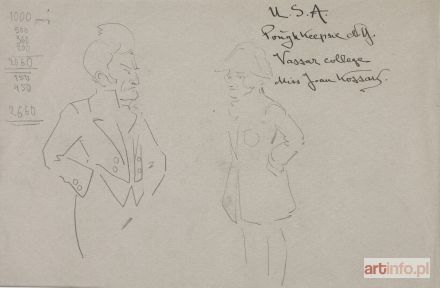 1000
500
360
200
2060
150
450
2660
U.S.A.
Poughkeepsie N.Y.
Vassar college
Miss Joan Kossak
artinfo.pl